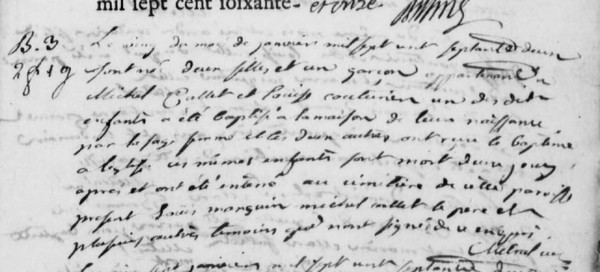 mil sept cent soixante- et onze
B. 3 Le cinq du moy de janvier mil sept cent septante deux
2 f 1 g sont né deux filles et un garçon appartenant a
Michel Callet et Louisse couturier un des dits
enfants a été baptisé a la maison de leur naissance
par la sage femme et les deux autres ont reçu le baptême
a leglise ces mêmes enfants sont mort deux jours
apres et ont été enterré au cimetière de cette paroisse
present Louis manguin michel callet le pere et
plusieurs autres temoins qui n'ont signé de ce enquis
janvier mil sept cent septante deux